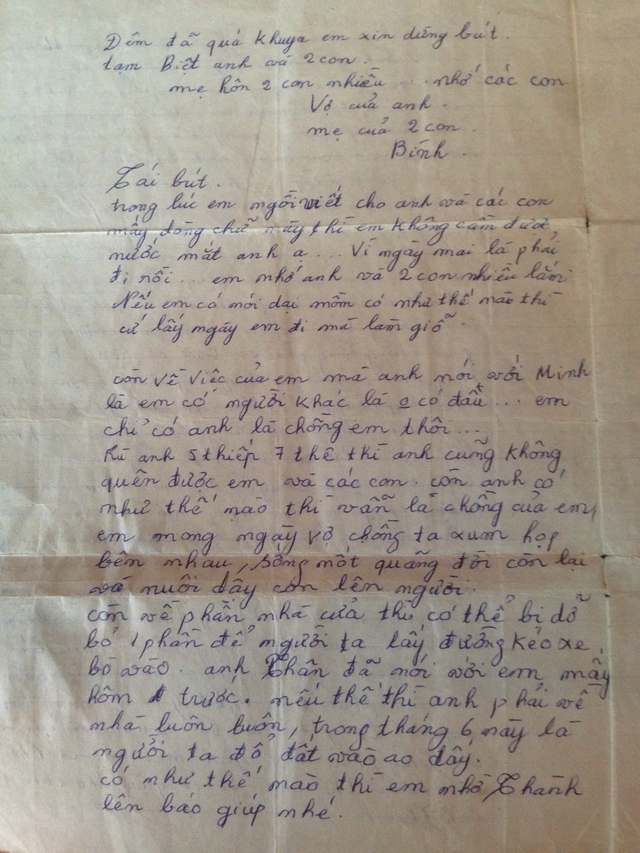 Đêm đã quá khuya em xin dừng bút.
tạm Biệt anh và 2 con.
mẹ hôn 2 con nhiều ... nhớ các con
Vợ của anh.
mẹ của 2 con.
Bính.
Tái bút.
trong lúc em ngồi viết cho anh và các con
mấy dòng chữ này thì em không cầm được
nước mắt anh ạ... Vì ngày mai là phải
đi rồi... em nhớ anh và 2 con nhiều lắm
Nếu em có mới dại mồm có như thế nào thì
cứ lấy ngày em đi mà làm giỗ.
còn về việc của em mà anh nói với Minh
là em có người khác là o có đâu... em
chỉ có anh là chồng em thôi...
dù anh 5 thiếp 7 thê thì anh cũng không
quên được em và các con. còn anh có
như thế nào thì vẫn là chồng của em,
em mong ngày vợ chồng ta xum họp
bên nhau, sống một quãng đời còn lại
và nuôi dậy con lên người.
còn về phần nhà cửa thì có thể bị dỡ
bỏ 1 phần để người ta lấy đường kéo xe
bò vào. anh Thân đã nói với em mấy
hôm trước. nếu thế thì anh phải về
nhà luôn luôn, trong tháng 6 này là
người ta đổ đất vào ao đấy.
có như thế nào thì em nhờ Thành
lên báo giúp nhé.